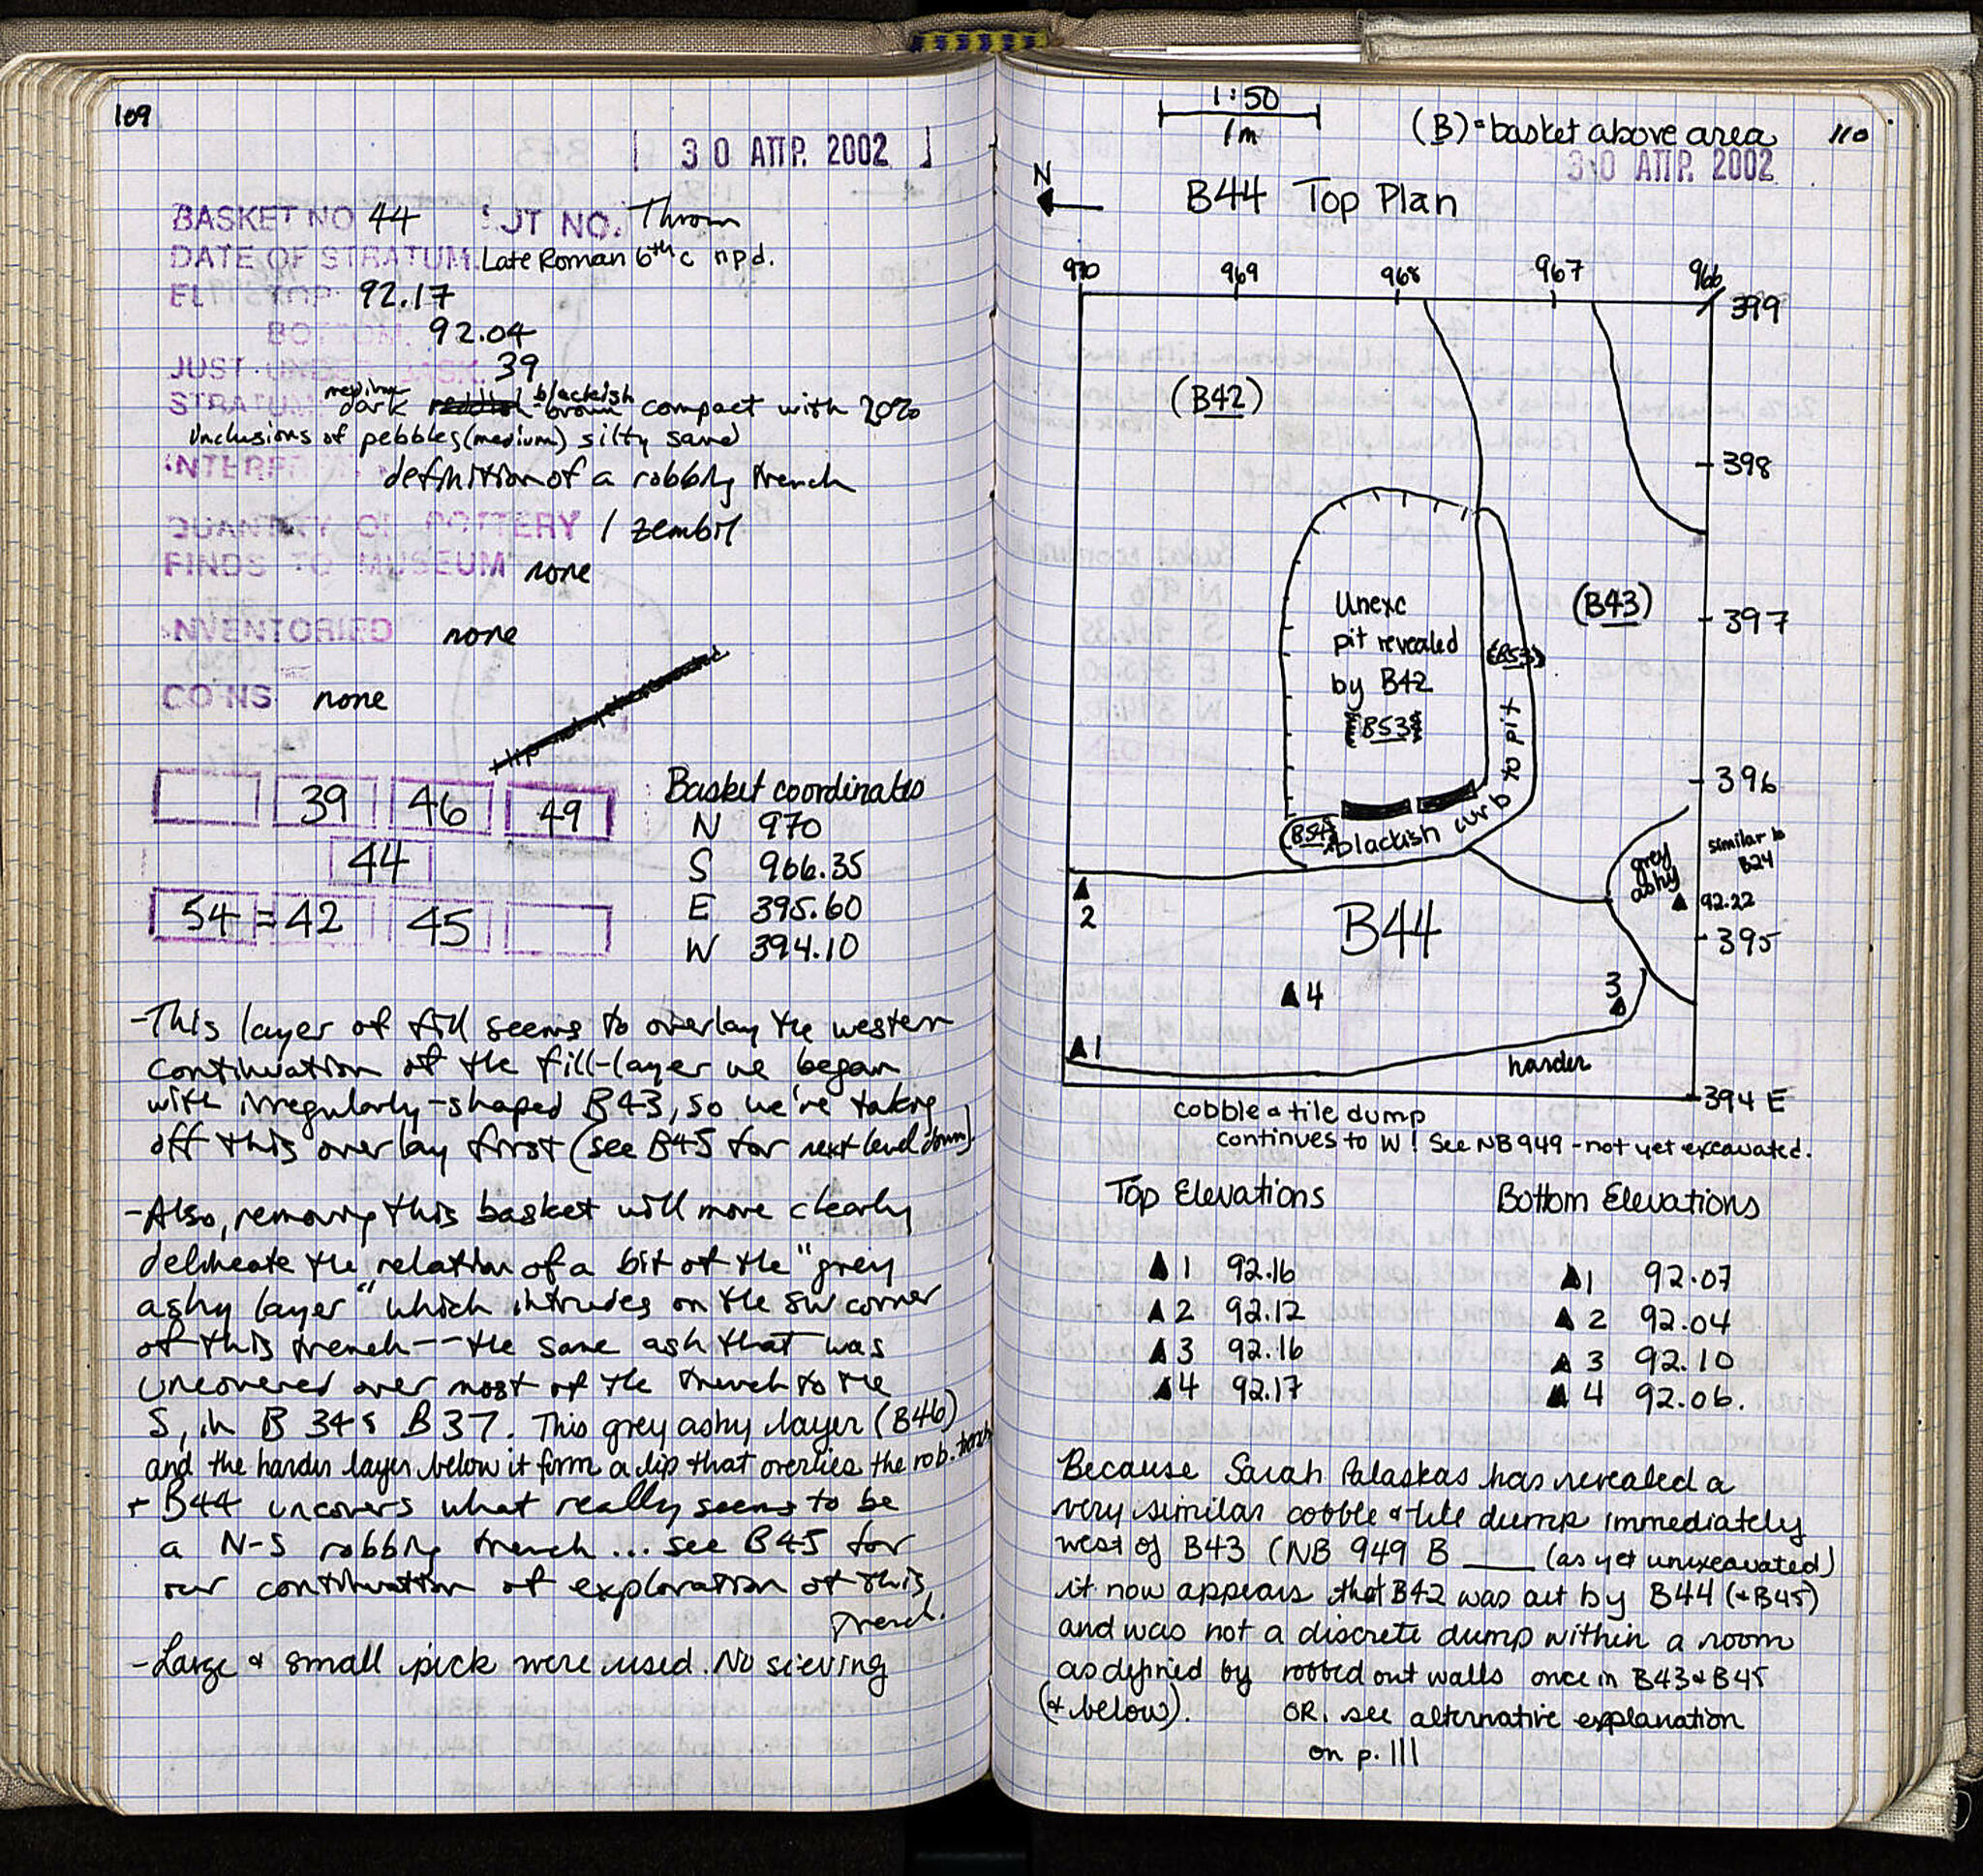 109
30 ΑΠΡ. 2002
BASKET NO 44 LOT NO. Throm
DATE OF STRATUM. Late Roman 6th c npd.
EL TOP 92.17
BOTTOM. 92.04
JUST UNDER BASK. 39
STRATUM medium dark blackish brown compact with 20%
inclusions of pebbles (medium) silty sand
INTERPRET. definition of a robbing trench
QUANTITY OF POTTERY 1 zembil
FINDS TO MUSEUM none
INVENTORIED none
COINS none
39 46 49
44
54 = 42 45
Basket coordinates
N 970
S 966.35
E 395.60
W 394.10
-This layer of fill seems to overlay the western
continuation of the fill-layer we began
with irregularly-shaped B43, so we're taking
off this overlay first (see B45 for next level down)
-Also, removing this basket will more clearly
delineate the relation of a bit of the "grey
ashy layer" which intrudes on the SW corner
of this trench--the same ash that was
uncovered over most of the trench to the
S, in B 34 & B 37. This grey ashy layer (B46)
and the harder layer below it form a lip that overlies the rob. trench
+ B44 uncovers what really seems to be
a N-S robbing trench... see B45 for
our continuation of exploration of this
trench.
-Large & small pick were used. No sieving
1:50
1m
(B) = basket above area
110
30 ΑΠΡ. 2002
N
B44 Top Plan
970 969 968 967 966
399
(B42)
398
Unexc
pit revealed
by B42
{B53}
(B53)
(B43)
397
396
blackish curb to pit
(B54)
grey
ashy
similar to
B24
92.22
2
B44
395
4
3
1
harder
394 E
cobble & tile dump
continues to W! See NB 949 - not yet excavated.
Top Elevations
▲1 92.16
▲2 92.12
▲3 92.16
▲4 92.17
Bottom Elevations
▲1 92.07
▲2 92.04
▲3 92.10
▲4 92.06.
Because Sarah Palaskas has revealed a
very similar cobble & tile dump immediately
west of B43 (NB 949 B ____ (as yet unexcavated)
it now appears that B42 was cut by B44 (+B45)
and was not a discrete dump within a room
as defined by robbed out walls once in B43 & B45
(+ below). OR, see alternative explanation
on p. 111